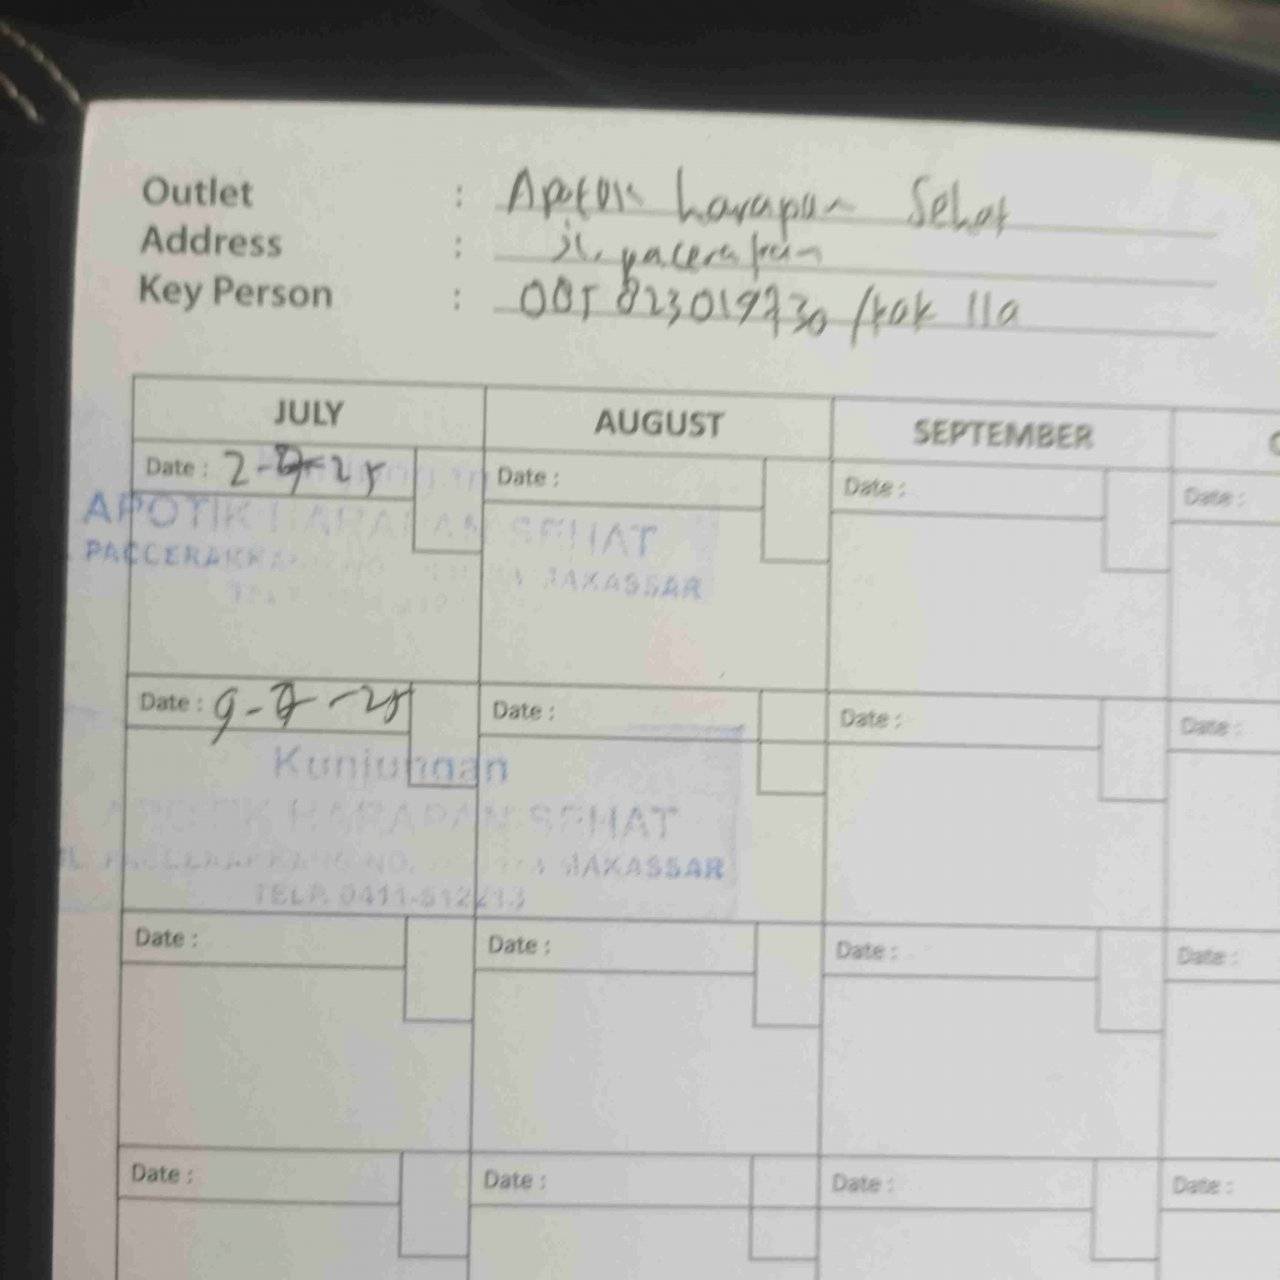 Outlet : Apotik harapan Sehat
Address : jl. paccerakkan
Key Person : 085823019730 /kak Ila
JULY AUGUST SEPTEMBER
Date : 2-7-25 Date : Date : Date :
APOTIK HARAPAN SEHAT
PACCERAKKA MAKASSAR
Date : 9-7-25 Date : Date : Date :
Kunjungan
APOTIK HARAPAN SEHAT
JL. PACCERAKKANG NO. MAKASSAR
TELP. 0411-512213
Date : Date : Date : Date :
Date : Date : Date : Date :